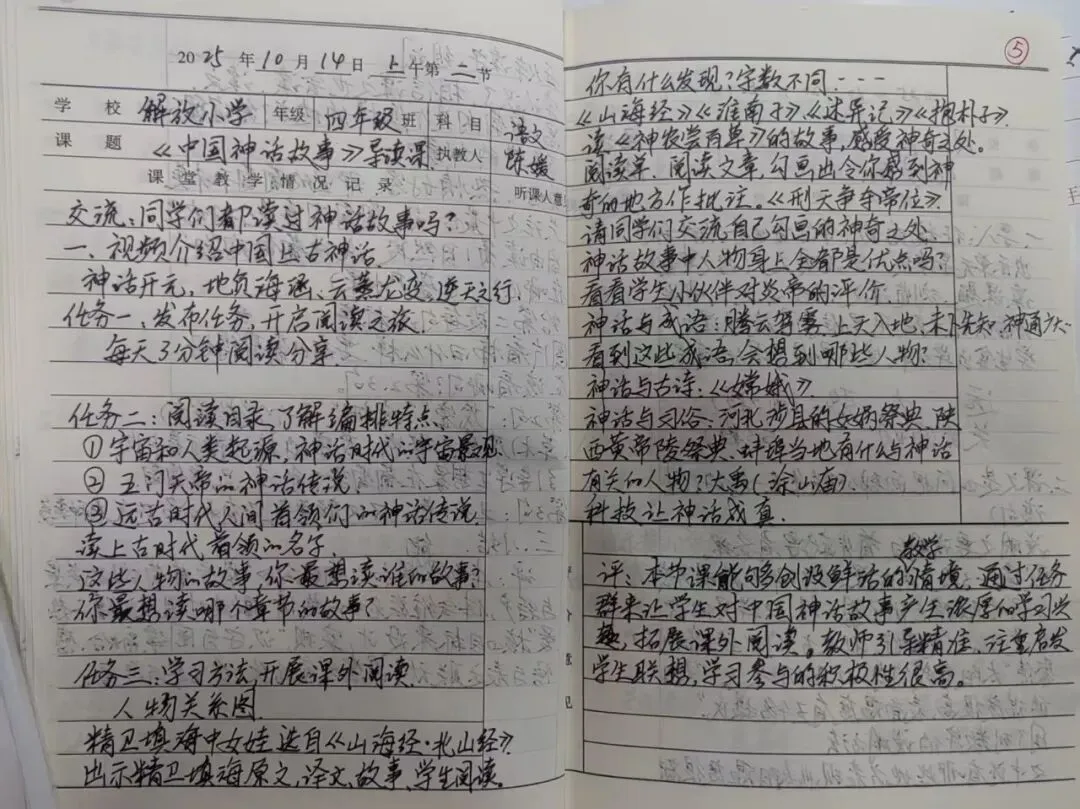 2025年10月14日 上午第二节
学校 解放小学 年级 四年级 班 科目 语文
课题 《中国神话故事》导读课 执教人 陈媛
课堂教学情况记录 听课人意
交流：同学们都读过神话故事吗？
一、视频介绍中国上古神话
神话开元，地负海涵、云蒸龙变、逆天之行.
任务一、发布任务，开启阅读之旅.
每天3分钟阅读分享.
任务二：阅读目录，了解编排特点.
①宇宙和人类起源，神话时代的宇宙景观
②五门天帝的神话传说.
③远古时代人间首领们的神话传说.
读上古时代首领的名字.
这些人物的故事，你最想读谁的故事？
你最想读哪个章节的故事？
任务三：学习方法，开展课外阅读.
人物关系图.
精卫填海中女娃选自《山海经·北山经》.
出示精卫填海原文，译文，故事，学生阅读.
⑤
你有什么发现？字数不同----
《山海经》《淮南子》《述异记》《抱朴子》.
读《神农尝百草》的故事，感受神奇之处。
阅读单，阅读文章，勾画出令你感到神
奇的地方作批注。《刑天争夺帝位》.
请同学们交流自己勾画的神奇之处.
神话故事中人物身上全都是优点吗？
看看学生小伙伴对炎帝的评价.
神话与成语：腾云驾雾 上天入地，未卜先知，神通广大
看到这些成语，会想到哪些人物？
神话与古诗：《嫦娥》
神话与习俗：河北涉县的女娲祭典、陕
西黄帝陵祭典、蚌埠当地有什么与神话
有关的人物？大禹（涂山庙）.
科技让神话成真.
评：本节课能够创设鲜活的教学情境，通过任务
群来让学生对中国神话故事产生浓厚的学习兴
趣，拓展课外阅读。教师引导精准，注重启发
学生联想，学习参与的积极性很高。
见